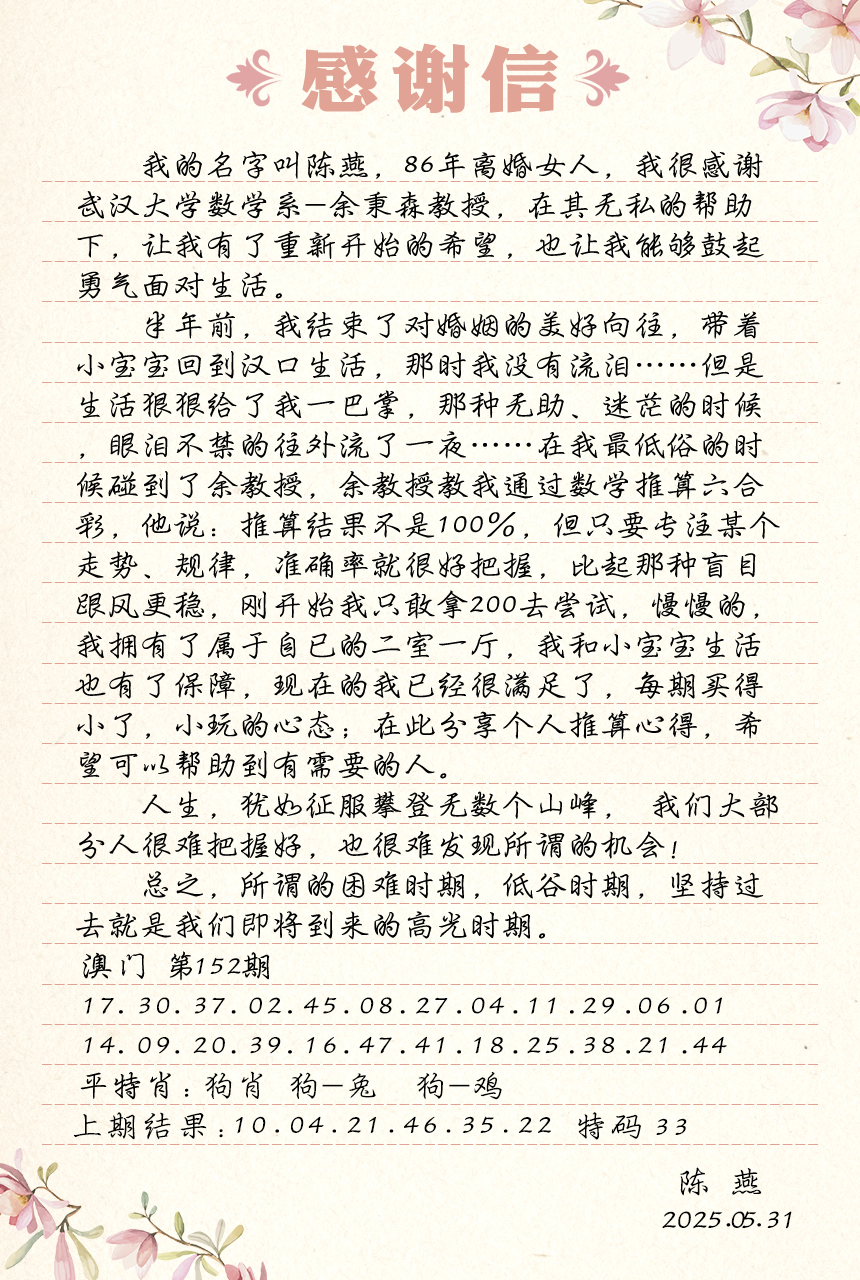 感谢信
我的名字叫陈燕，86年离婚女人，我很感谢
武汉大学数学系—余秉森教授，在其无私的帮助
下，让我有了重新开始的希望，也让我能够鼓起
勇气面对生活。
半年前，我结束了对婚姻的美好向往，带着
小宝宝回到汉口生活，那时我没有流泪……但是
生活狠狠给了我一巴掌，那种无助、迷茫的时候
，眼泪不禁的往外流了一夜……在我最低俗的时
候碰到了余教授，余教授教我通过数学推算六合
彩，他说：推算结果不是100%，但只要专注某个
走势、规律，准确率就很好把握，比起那种盲目
跟风更稳，刚开始我只敢拿200去尝试，慢慢的，
我拥有了属于自已的二室一厅，我和小宝宝生活
也有了保障，现在的我已经很满足了，每期买得
小了，小玩的心态；在此分享个人推算心得，希
望可以帮助到有需要的人。
人生，犹如征服攀登无数个山峰， 我们大部
分人很难把握好，也很难发现所谓的机会！
总之，所谓的困难时期，低谷时期，坚持过
去就是我们即将到来的高光时期。
澳门 第152期
17.30.37.02.45.08.27.04.11.29.06.01
14.09.20.39.16.47.41.18.25.38.21.44
平特肖：狗肖 狗—兔 狗—鸡
上期结果：10.04.21.46.35.22 特码 33
陈 燕
2025.05.31